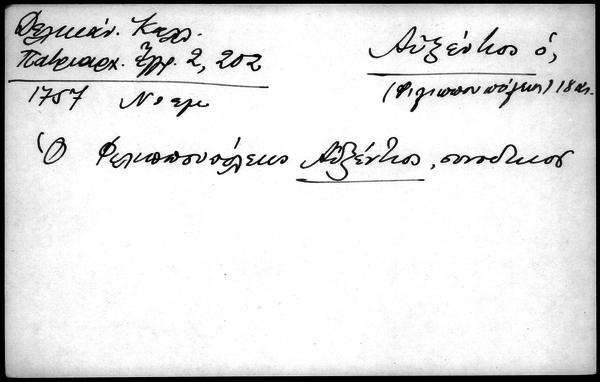 Δελικάν. Καλλ.
Πατριαρχ. Ἔγγρ. 2, 202
1757 Νοεμ
Αὐξέντιος ὁ,
(Φιλιππουπόλεως) 18 αι.
Ὁ Φιλιππουπόλεως Αὐξέντιος, συνοδικός